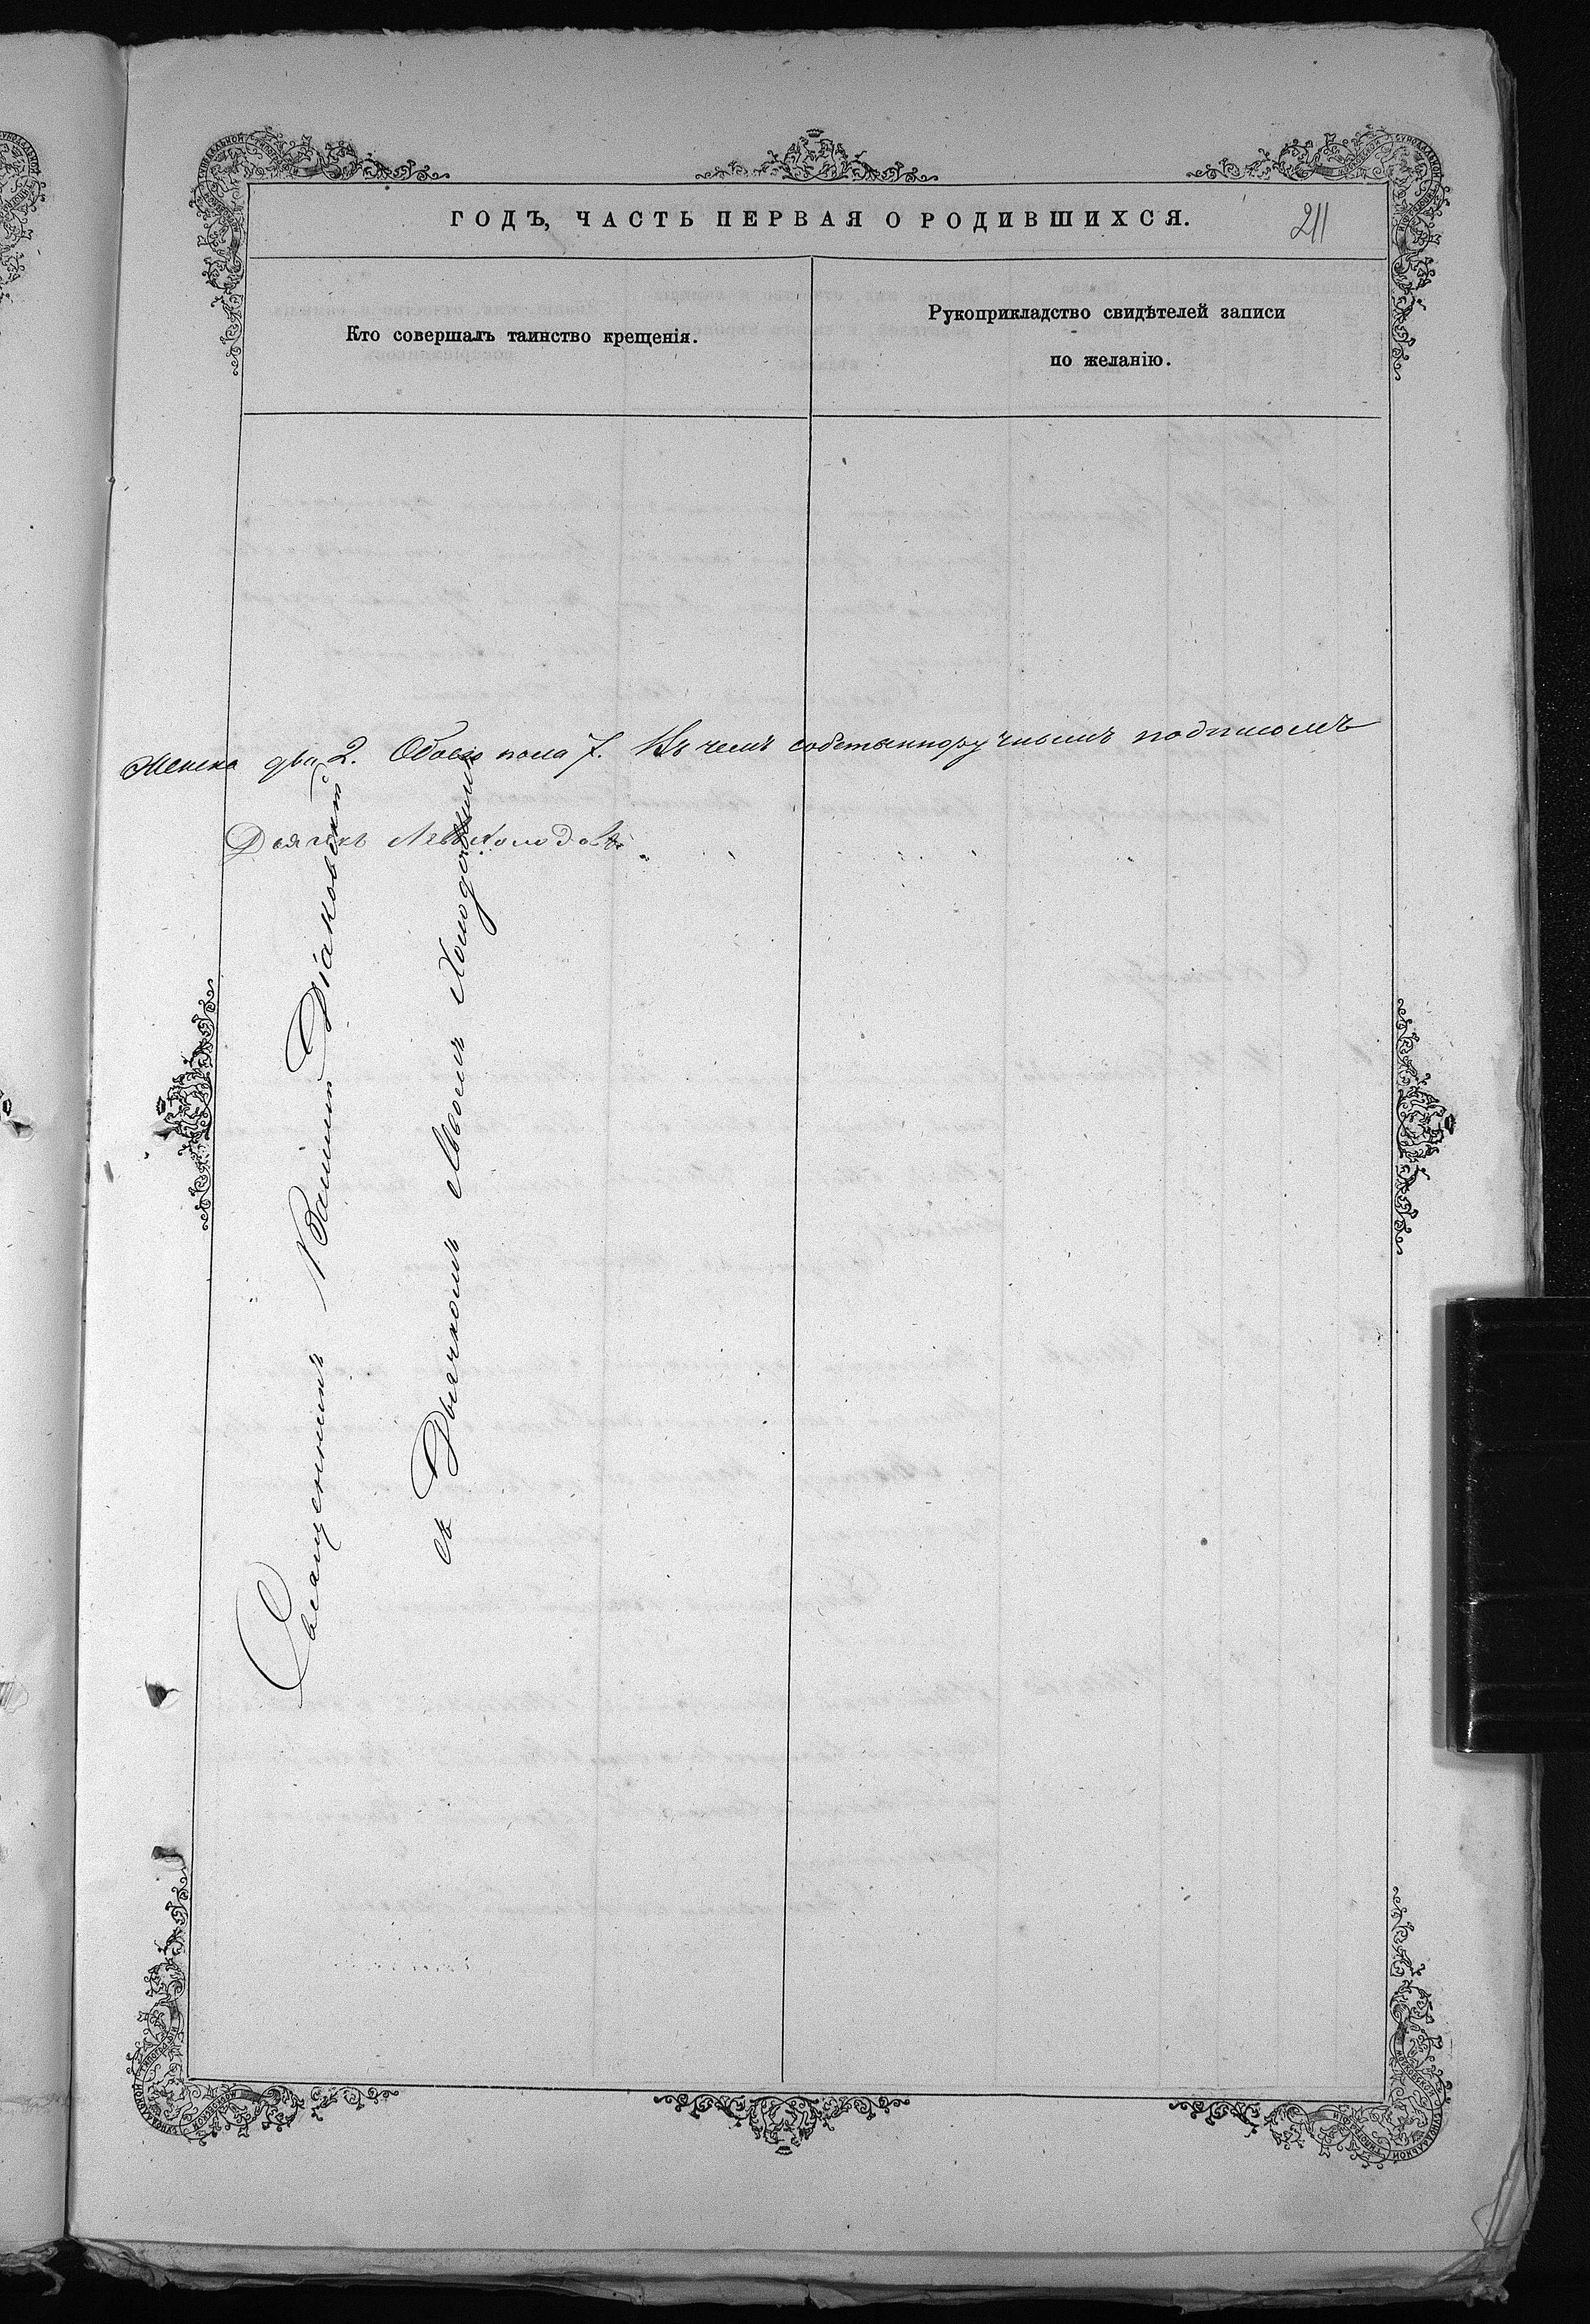 ГОДЪ, ЧАСТЬ ПЕРВАЯ О РОДИВШИХСЯ.
211
Кто совершалъ таинство крещенія.
Рукоприкладство свидѣтелей записи
по желанію.
Женска два 2. Обоего пола 7. Въ чемъ собственноручнымъ подписомъ
Дьячекъ Левъ Холодов
Священникъ Василій Діаковскій
съ Дьячкомъ Львомъ Холодовымъ